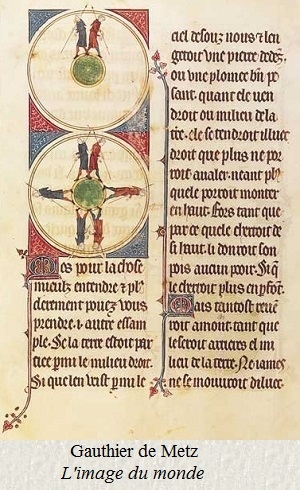 Mes pour la chose
mieulz entendre et pl'
clerement pouez vous
prendre .i. autre essam
ple. Se la terre estoit par
tiee pmi le milieu droit.
Si que len veist pmi le
ciel desouz nous et len
getoit une pierre dedēz
ou une plomee bn pe
sant. quant ele ven
droit ou milieu de la
tre. ele se tendroit illuec
droit que plus ne por
roit avaler. neant pl'
quele porroit monter
en haut. Fors tant que
par ce quele cherroit de
si haut. li donroit son
pois aucun
le cherroit plus en pfōt.
Mais tantost reven
roit amont. tant que
le seroit arrieres el mi
lieu de la terre. Ne iames
ne se mouvroit diluec.
Gauthier de Metz
L'image du monde